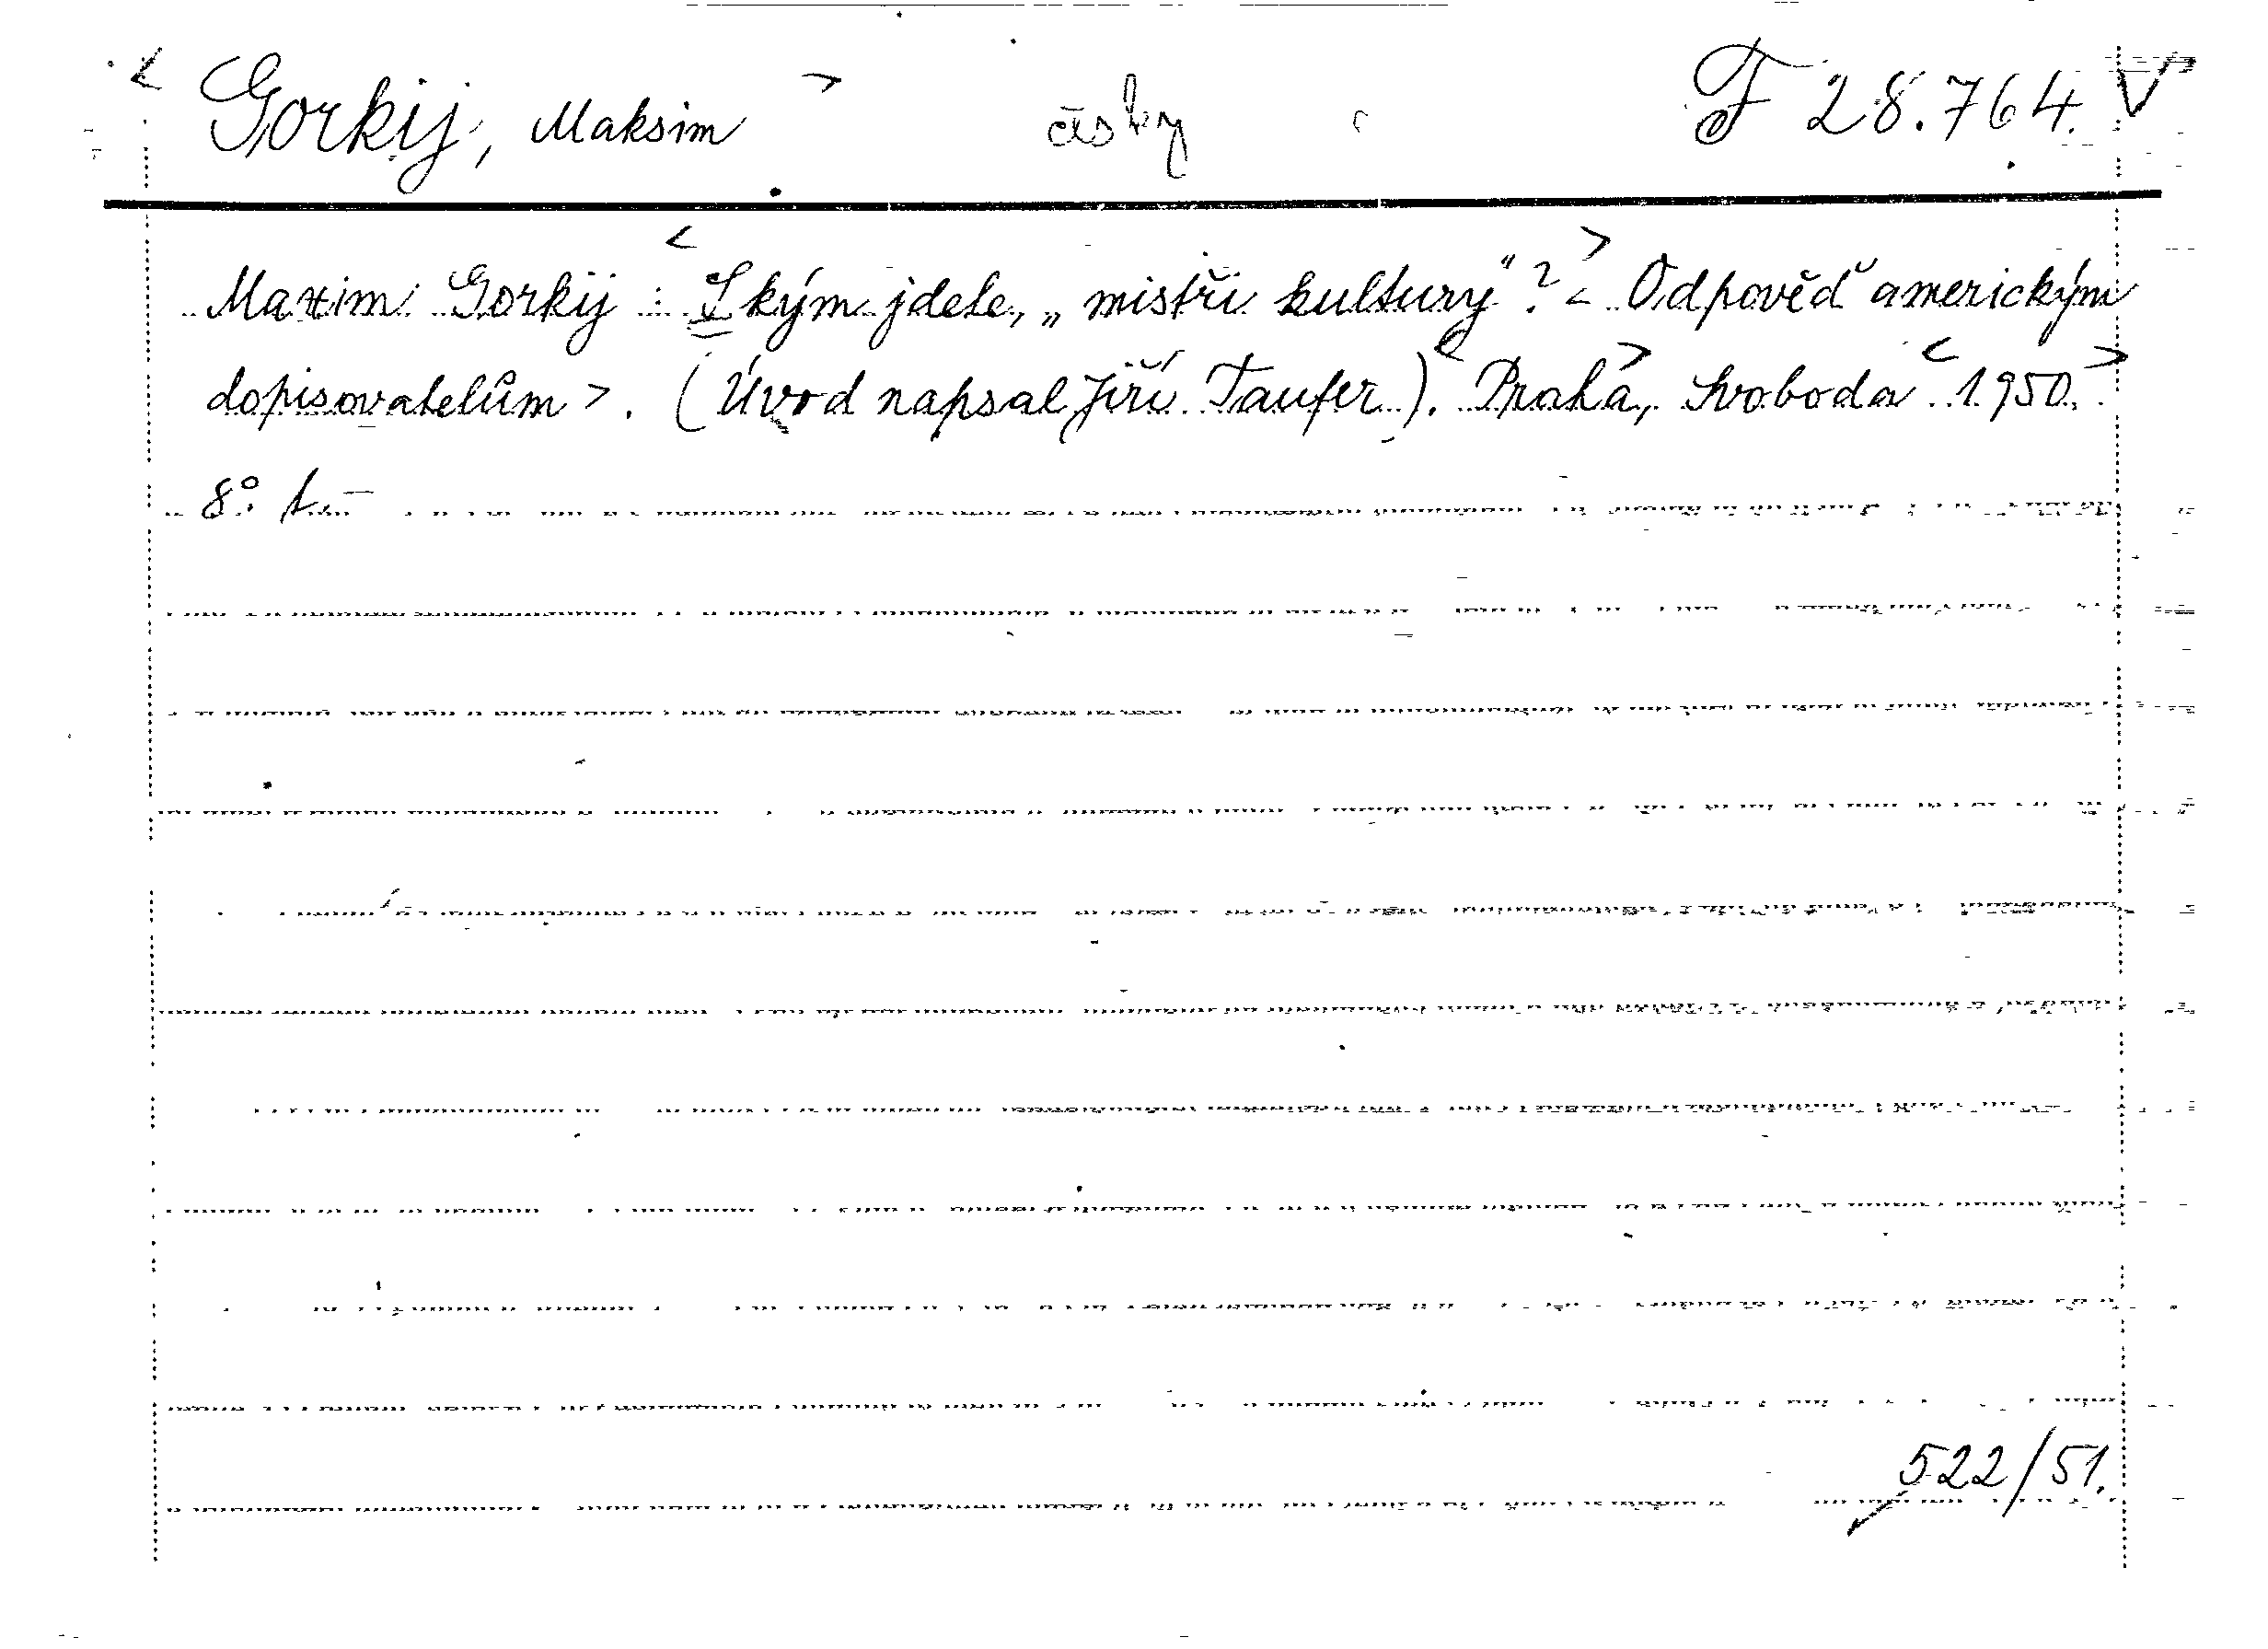 < Gorkij, Maksim > česky F 28.764. V
Maxim Gorkij : < S kým jdete, „mistři kultury"? > < Odpověď americkým
dopisovatelům >. (Úvod napsal Jiří Taufer). < Praha >, Svoboda < 1950. >
8°. 1.-
522/51.